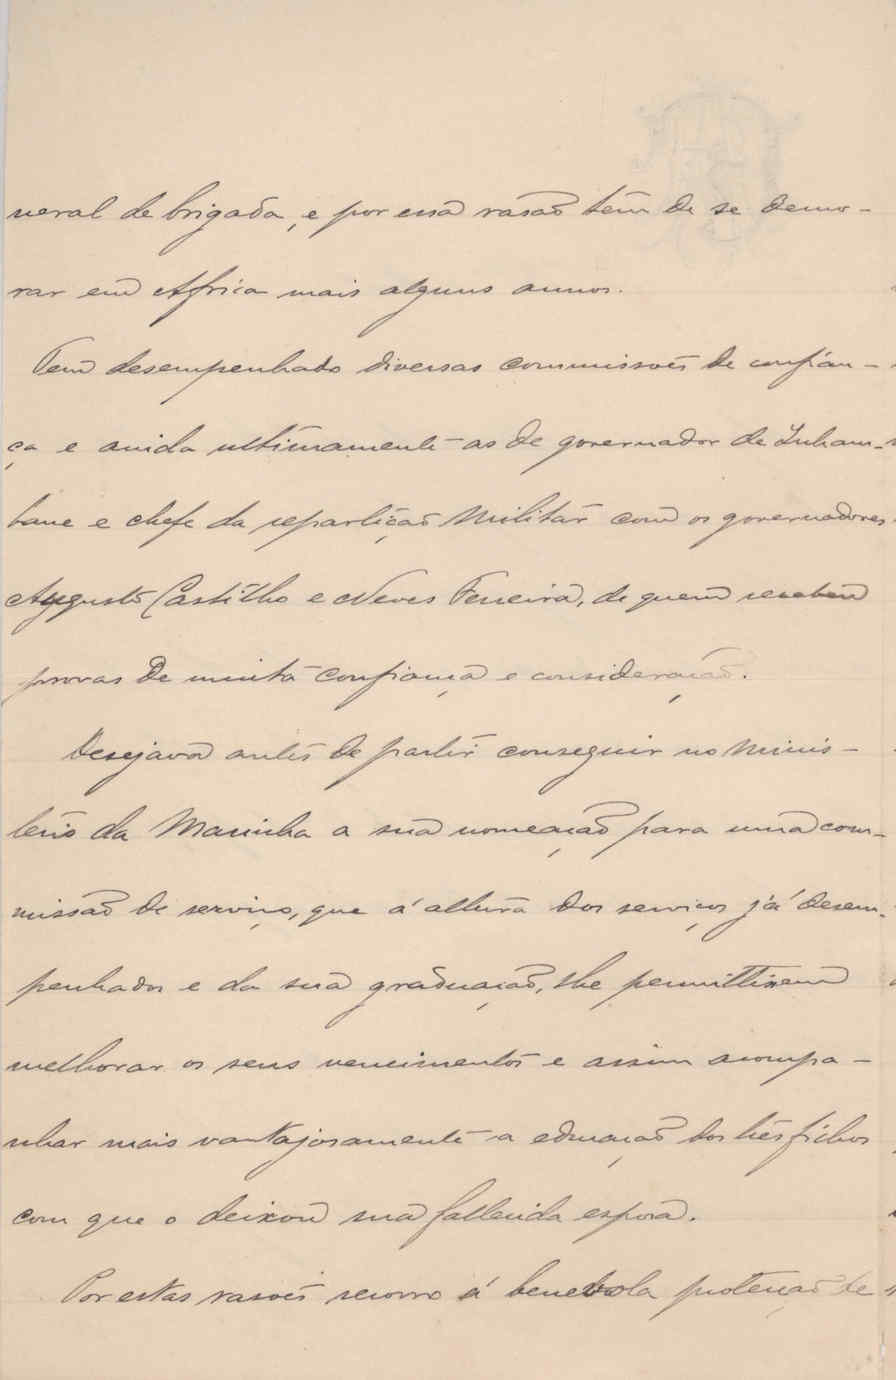 neral de brigada, e por essa rasão tem de se demo-
rar em Africa mais alguns annos.
Tem desempenhado diversas commissoës de confian-
ça e ainda ultimamente as de governador de Inham-
bane e chefe da repartição Militar com os governadores
Augusto Castilho e Neves Ferreira, de quem recebeu
provas de muita confiança e consideração.
Desejava antes de partir conseguir no Minis-
terio da Marinha a sua nomeação para uma com-
missão de serviço, que á altura dos serviços já desem-
penhados e da sua graduação, lhe permittissem
melhorar os seus vencimentos e assim acompa-
nhar mais vantajosamente a educação dos tres filhos
com que o deixou sua fallecida esposa.
Por estas rasoës recorro á benevola proteção de